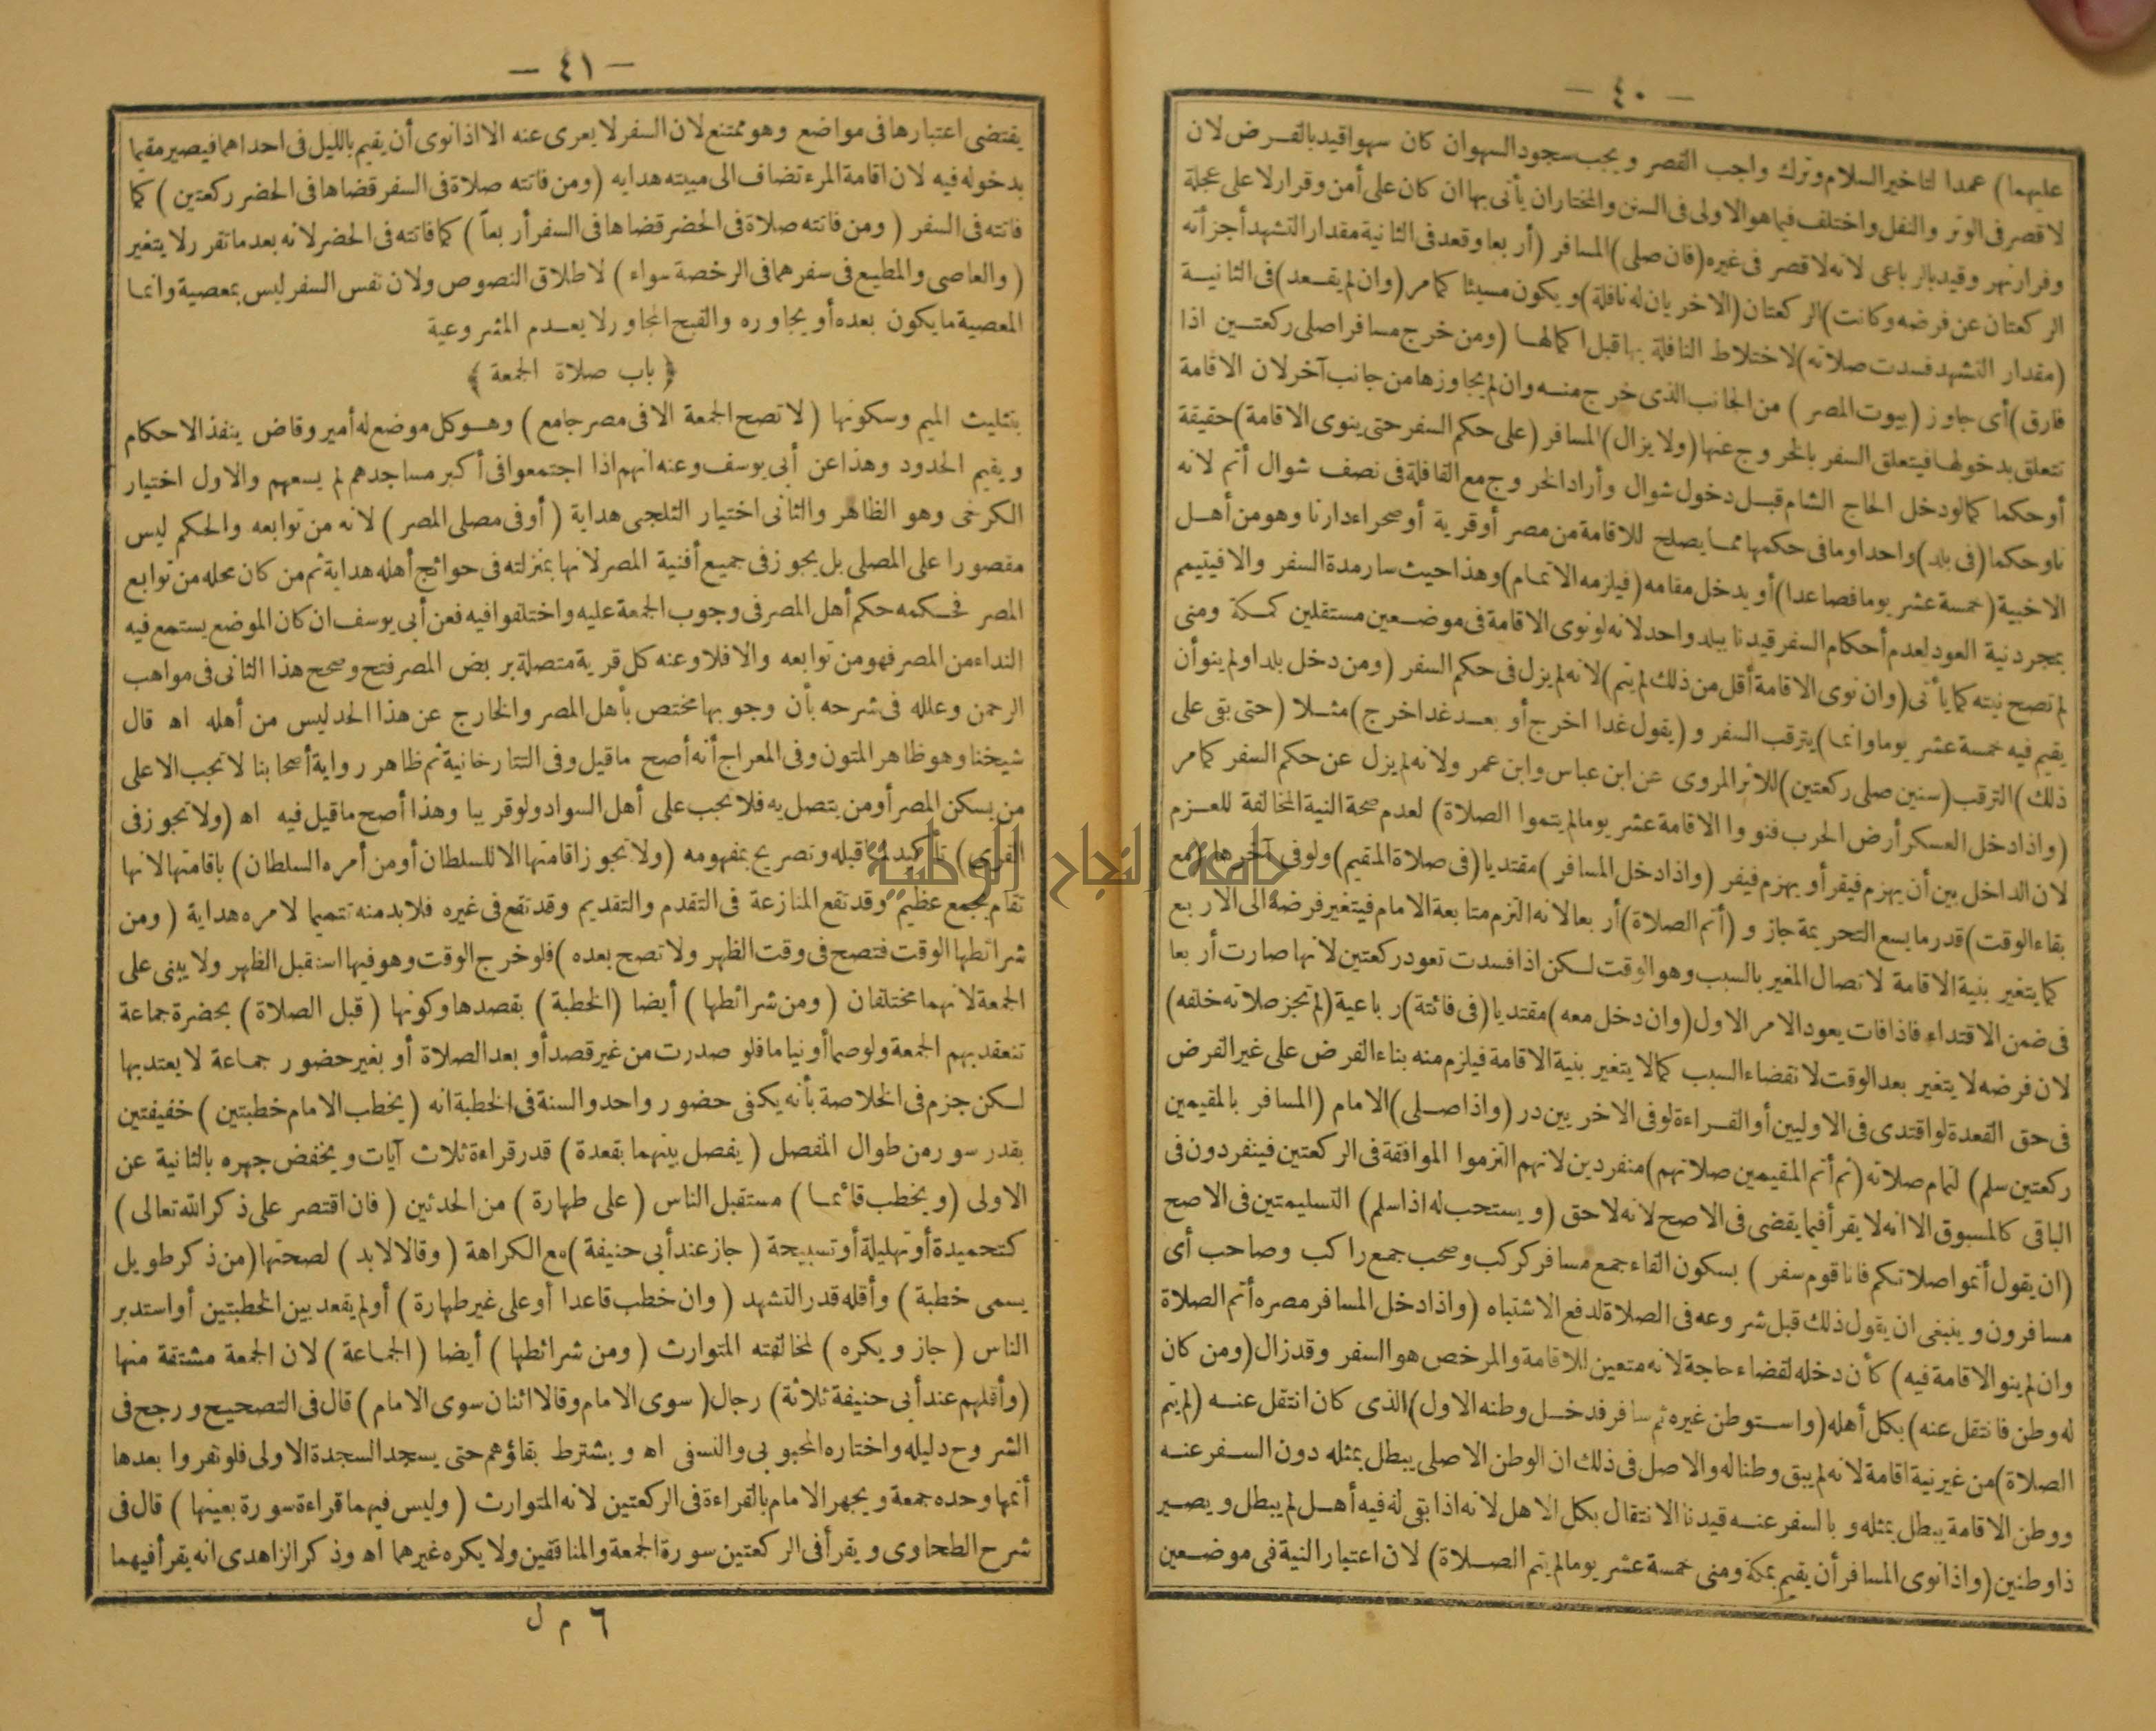 — ٤٠ —
عليهما) عمدا لتاخير السلام وترك واجب القصر ويجب سجود السهو ان كان سهوا قيد بالفرض لان
لا قصر فى الوتر والنفل واختلف فيما هو الاولى فى السنن والمختار ان يأتى بها ان كان على أمن وقرار لا على عجلة
وفرار نهر وقيد بالرباعى لانه لا قصر فى غيره (فان صلى) المسافر (أربعا وقعد فى الثانية مقدار التشهد أجزأته
الركعتان عن فرضه وكانت) الركعتان (الاخريان له نافلة) ويكون مسيئا كما مر (وان لم يقعد) فى الثانية
(مقدار التشهد فسدت صلاته) لاختلاط النافلة بها قبل اكمالها (ومن خرج مسافرا صلى ركعتين اذا
فارق) أى جاوز (بيوت المصر) من الجانب الذى خرج منه وان لم يجاوزها من جانب آخر لان الاقامة
تتعلق بدخولها فيتعلق السفر بالخروج عنها (ولا يزال) المسافر (على حكم السفر حتى ينوى الاقامة) حقيقة
أو حكما كما لو دخل الحاج الشام قبل دخول شوال وأراد الخروج مع القافلة فى نصف شوال أتم لانه
ناو حكما (فى بلد) واحد او ما فى حكمها مما يصلح للاقامة من مصر أو قرية أو صحراء دارنا وهو من أهل
الاخبية (خمسة عشر يوما فصاعدا) أو يدخل مقامه (فيلزمه الاتمام) وهذا حيث سار مدة السفر والا فيتيم
بمجرد نية العود لعدم أحكام السفر قيدنا ببلد واحد لانه لو نوى الاقامة فى موضعين مستقلين كمكة ومنى
لم تصح نيته كما يأتى (وان نوى الاقامة أقل من ذلك لم يتم) لانه لم يزل فى حكم السفر (ومن دخل بلدا ولم ينو أن
يقيم فيه خمسة عشر يوما وانما) يترقب السفر و (يقول غدا اخرج أو بعد غد اخرج) مثلا (حتى بقى على
ذلك) الترقب (سنين صلى ركعتين) للاثر المروى عن ابن عباس وابن عمر ولانه لم يزل عن حكم السفر كما مر
(واذا دخل العسكر أرض الحرب فنووا الاقامة عشر يوما لم يتموا الصلاة) لعدم صحة النية المخالفة للعزم
لان الداخل بين أن يهزم فيقر أو يهزم فيفر (واذا دخل المسافر) مقتديا (فى صلاة المقيم) ولو فى آخرها (مع
بقاء الوقت) قدر ما يسع التحريمة جاز و (أتم الصلاة) أربعا لانه التزم متابعة الامام فيتغير فرضه الى الاربع
كما يتغير بنية الاقامة لاتصال المغير بالسبب وهو الوقت لكن اذا فسدت تعود ركعتين لانها صارت أربعا
فى ضمن الاقتداء فاذا فات يعود الامر الاول (وان دخل معه) مقتديا (فى فائتة) رباعية (لم تجز صلاته خلفه)
لان فرضه لا يتغير بعد الوقت لانقضاء السبب كما لا يتغير بنية الاقامة فيلزم منه بناء الفرض على غير الفرض
فى حق القعدة لو اقتدى فى الاوليين أو القراءة لو فى الاخريين در (واذا صلى) الامام (المسافر بالمقيمين
ركعتين سلم) لتمام صلاته (ثم أتم المقيمين صلاتهم) منفردين لانهم التزموا الموافقة فى الركعتين فينفردون فى
الباقى كالمسبوق الا انه لا يقرأ فيما يقضى فى الاصح لانه لاحق (ويستحب له اذا سلم) التسليمتين فى الاصح
(ان يقول أتموا صلاتكم فانا قوم سفر) بسكون الفاء جمع مسافر كركب وصحب جمع راكب وصاحب أى
مسافرون وينبغى ان يقول ذلك قبل شروعه فى الصلاة لدفع الاشتباه (واذا دخل المسافر مصره أتم الصلاة
وان لم ينو الاقامة فيه) كأن دخله لقضاء حاجة لانه متعين للاقامة والمرخص هو السفر وقد زال (ومن كان
له وطن فانتقل عنه) بكل أهله (واستوطن غيره ثم سافر فدخل وطنه الاول) الذى كان انتقل عنه (لم يتم
الصلاة) من غير نية اقامة لانه لم يبق وطنا له والاصل فى ذلك ان الوطن الاصلى يبطل بمثله دون السفر عنه
ووطن الاقامة يبطل بمثله و بالسفر عنه قيدنا الانتقال بكل الاهل لانه اذا بقى له فيه أهل لم يبطل ويصير
ذا وطنين (واذا نوى المسافر أن يقيم بمكة ومنى خمسة عشر يوما لم يتم الصلاة) لان اعتبار النية فى موضعين
— ٤١ —
يقتضى اعتبارها فى مواضع وهو ممتنع لان السفر لا يعرى عنه الا اذا نوى أن يقيم بالليل فى احداهما فيصير مقيما
بدخوله فيه لان اقامة المرء تضاف الى مبيته هدايه (ومن فاتته صلاة فى السفر قضاها فى الحضر ركعتين) كما
فاتته فى السفر (ومن فاتته صلاة فى الحضر قضاها فى السفر أربعاً) كما فاتته فى الحضر لانه بعد ما تقرر لا يتغير
(والعاصى والمطيع فى سفرهما فى الرخصة سواء) لاطلاق النصوص ولان نفس السفر ليس بمعصية وانما
المعصية ما يكون بعده أو يجاوره والقبح المجاور لا يعدم المشروعية
﴿ باب صلاة الجمعة ﴾
بتثليث الميم وسكونها (لا تصح الجمعة الا فى مصر جامع) وهو كل موضع له أمير وقاض ينفذ الاحكام
ويقيم الحدود وهذا عن أبى يوسف وعنه انهم اذا اجتمعوا فى أكبر مساجدهم لم يسعهم والاول اختيار
الكرخى وهو الظاهر والثانى اختيار الثلجى هداية (أو فى مصلى المصر) لانه من توابعه والحكم ليس
مقصورا على المصلى بل يجوز فى جميع أفنية المصر لانها بمنزلته فى حوائج أهله هداية ثم من كان محله من توابع
المصر فحكمه حكم أهل المصر فى وجوب الجمعة عليه واختلفوا فيه فعن أبى يوسف ان كان الموضع يستمع فيه
النداء من المصر فهو من توابعه والا فلا وعنه كل قرية متصلة بربض المصر فتح وصحح هذا الثانى فى مواهب
الرحمن وعلله فى شرحه بأن وجوبها مختص بأهل المصر والخارج عن هذا الحد ليس من أهله اه قال
شيخنا وهو ظاهر المتون وفى المعراج أنه أصح ما قيل وفى التتارخانية ثم ظاهر رواية أصحابنا لا تجب الا على
من يسكن المصر أو من يتصل به فلا تجب على أهل السواد ولو قريبا وهذا أصح ما قيل فيه اه (ولا تجوز فى
القرى) تأكيد لما قبله وتصريح بمفهومه (ولا تجوز اقامتها الا للسلطان أو من أمره السلطان) باقامتها لانها
تقام بجمع عظيم وقد تقع المنازعة فى التقدم والتقديم وقد تقع فى غيره فلا بد منه تتميما لامره هداية (ومن
شرائطها الوقت فتصح فى وقت الظهر ولا تصح بعده) فلو خرج الوقت وهو فيها استقبل الظهر ولا يبنى على
الجمعة لانهما مختلفان (ومن شرائطها) أيضا (الخطبة) بقصدها وكونها (قبل الصلاة) بحضرة جماعة
تنعقد بهم الجمعة ولو صما أو نياما فلو صدرت من غير قصد أو بعد الصلاة أو بغير حضور جماعة لا يعتد بها
لكن جزم فى الخلاصة بأنه يكفى حضور واحد والسنة فى الخطبة انه (يخطب الامام خطبتين) خفيفتين
بقدر سور من طوال المفصل (يفصل بينهما بقعدة) قدر قراءة ثلاث آيات ويخفض جهره بالثانية عن
الاولى (ويخطب قائما) مستقبل الناس (على طهارة) من الحدثين (فان اقتصر على ذكر الله تعالى)
كتحميدة أو تهليلة أو تسبيحة (جاز عند أبى حنيفة) مع الكراهة (وقالا لا بد) لصحتها (من ذكر طويل
يسمى خطبة) وأقله قدر التشهد (وان خطب قاعدا أو على غير طهارة) أو لم يقعد بين الخطبتين أو استدبر
الناس (جاز ويكره) لمخالفته المتوارث (ومن شرائطها) أيضا (الجماعة) لان الجمعة مشتقة منها
(وأقلهم عند أبى حنيفة ثلاثة) رجال (سوى الامام وقالا اثنان سوى الامام) قال فى التصحيح ورجح فى
الشروح دليله واختاره المحبوبى والنسفى اه ويشترط بقاؤهم حتى يسجد السجدة الاولى فلو نفروا بعدها
أتمها وحده جمعة ويجهر الامام بالقراءة فى الركعتين لانه المتوارث (وليس فيهما قراءة سورة بعينها) قال فى
شرح الطحاوى ويقرأ فى الركعتين سورة الجمعة والمنافقين ولا يكره غيرهما اه وذكر الزاهدى انه يقرأ فيهما
٦ م ل
جامعة النجاح الوطنية